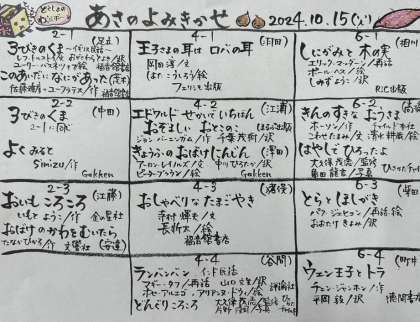 どくしょのあき
あさのよみきかせ
2024.10.15(火)
2-1
(足立)
3びきのくま
〜イギリス民話〜
レフ・トルストイ/文 おがさわらとよき/訳
ユーリー・バスネツォフ/絵 福音館書店
このあいだになにがあった?
佐藤雅彦+ユーフラテス/作 福音館書店
2-2
(中田)
3びきのくま
2-1に同じ
よくみると
Simizu/作
Gakken
2-3
(江藤)
おいもころころ
いもとようこ/作 金の星社
おばけのかわをむいたら
たなかひかる/作 文響社
(安達)
4-1
王さまの耳はロバの耳
岡田淳/文
はたこうしろう/絵
フェリシモ出版
4-2
(江浦)
エドワルド せかいでいちばん
おぞましい おとこのこ
ほるぷ出版
ジョン・バーニンガム/作 千葉茂樹/訳
きょうふのおばけにんじん
(澤田)
アーロン・レイノルズ/文 中川ひろたか/訳
ピーター・ブラウン/絵
Gakken
4-3
おしゃべりなたまごやき
寺村輝夫/文
長新太/絵
福音館書店
4-4
(谷間)
ランパンパン インド民話
マギー・ダフ/再話 山口文生/訳
ホセ・アルエゴ、アリアンヌ・ドウィ/絵
評論社
どんぐりころころ
大久保茂徳/監修
片野隆司/写真
6-1
しにがみと木の実
エリック・マッデン/再話
ポール・ヘス/絵
RIC出版
6-2
きんのすきな おうさま
ホーソン/作
こわせたまみ/文
はやしでひろったよ
亀田龍吉/写真
6-3
(柴田)
とらとほしがき
パク・ジェヒョン/再話・絵
おおたけきよみ/訳
6-4
(町井)
ウェン王子とトラ
チェン・ジャンホン/作
平岡敦/訳
徳間書店